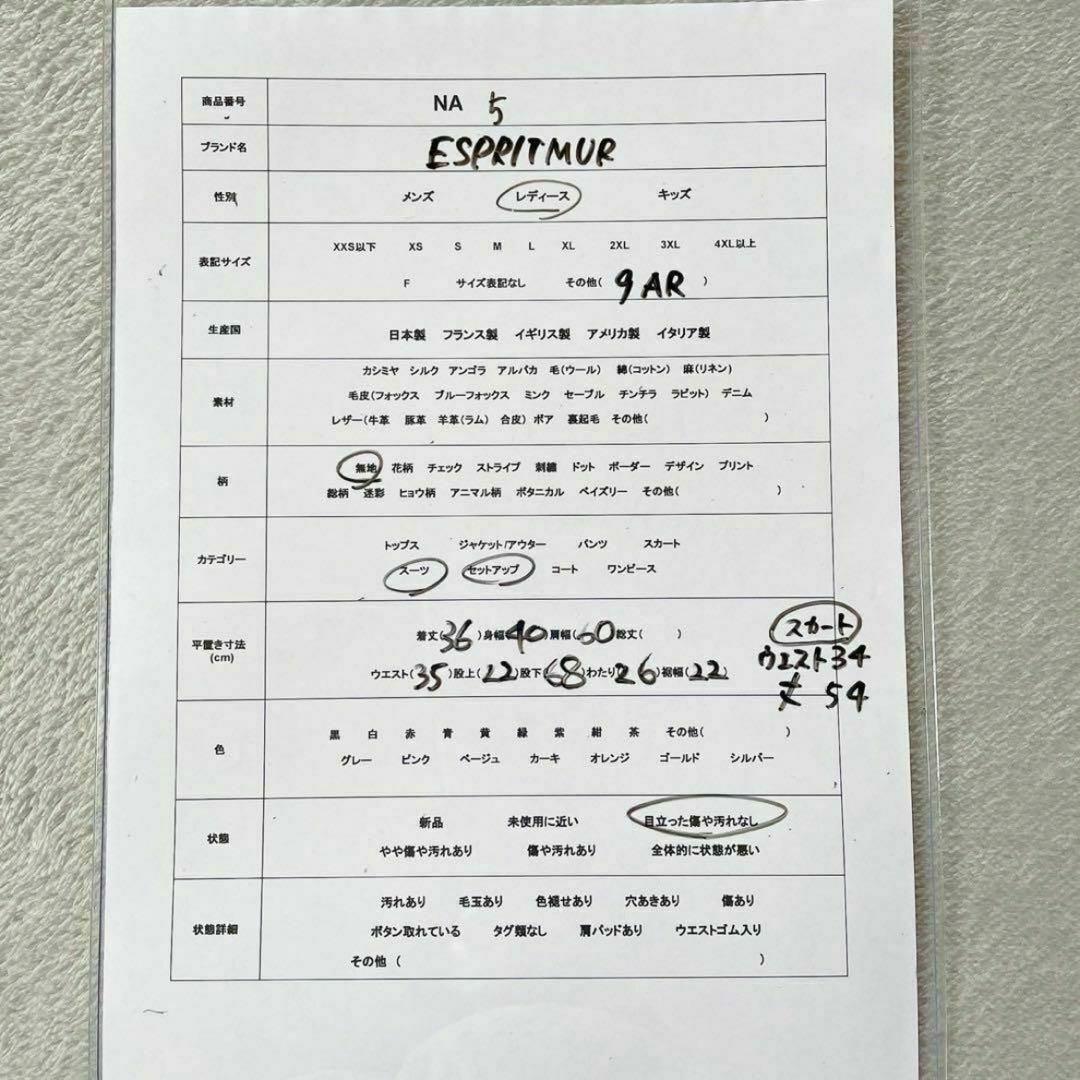 商品番号 NA 5
ブランド名 ESPRITMUR
性別 メンズ レディース キッズ
表記サイズ
XXS以下 XS S M L XL 2XL 3XL 4XL以上
F サイズ表記なし その他( 9AR )
生産国 日本製 フランス製 イギリス製 アメリカ製 イタリア製
素材
カシミヤ シルク アンゴラ アルパカ 毛(ウール) 綿(コットン) 麻(リネン)
毛皮(フォックス ブルーフォックス ミンク セーブル チンチラ ラビット) デニム
レザー(牛革 豚革 羊革(ラム) 合皮) ボア 裏起毛 その他( )
柄
無地 花柄 チェック ストライプ 刺繍 ドット ボーダー デザイン プリント
総柄 迷彩 ヒョウ柄 アニマル柄 ボタニカル ペイズリー その他( )
カテゴリー
トップス ジャケット/アウター パンツ スカート
スーツ セットアップ コート ワンピース
平置き寸法
(cm)
着丈(36)身幅(40)肩幅(60 総丈( )
ウエスト(35)股上(22)股下(68)わたり(26)裾幅(22)
スカート
ウエスト34
丈 54
色
黒 白 赤 青 黄 緑 紫 紺 茶 その他( )
グレー ピンク ベージュ カーキ オレンジ ゴールド シルバー
状態
新品 未使用に近い 目立った傷や汚れなし
やや傷や汚れあり 傷や汚れあり 全体的に状態が悪い
状態詳細
汚れあり 毛玉あり 色褪せあり 穴あきあり 傷あり
ボタン取れている タグ類なし 肩パッドあり ウエストゴム入り
その他 ( )